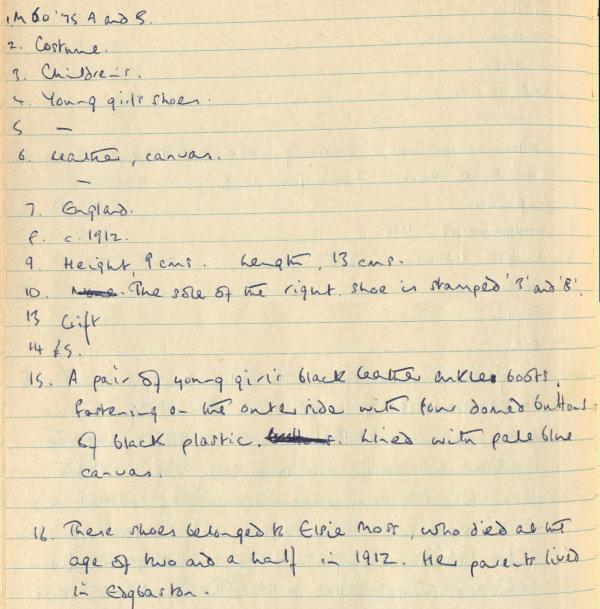 1. M60'75 A and B.
2. Costume.
3. Children's.
4. Young girl's shoes.
5 —
6. Leather, canvas.
—
7. England.
8. c. 1912.
9. Height, 9 cms. Length, 13 cms.
10. None. The sole of the right shoe is stamped '3' and '8'.
13 Gift
14 £5.
15. A pair of young girl's black leather ankle boots,
fastening on the outer side with four domed buttons
of black plastic. buttons. Lined with pale blue
canvas.
16. These shoes belonged to Elsie Moss, who died at the
age of two and a half in 1912. Her parents lived
in Edgbaston.